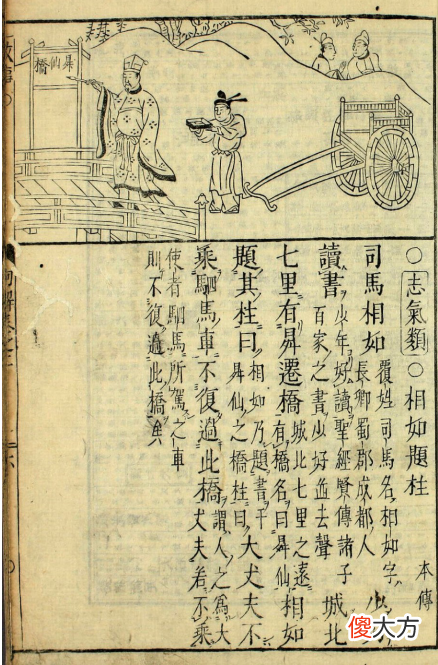 昇仙橋
○志氣類○相如題柱 本傳
司馬相如 覆姓司馬名相如字長卿蜀郡成都人 少
讀書 少年好讀聖經賢傳諸子百家之書少好並去聲 城北
七里有昇遷橋 城北七里之遠有橋名曰昇仙 相如
題其柱曰 相如乃題書于昇仙之橋柱曰 大丈夫不
乘駟馬車不復過此橋 謂人之爲大丈夫若不乘
使者駟馬所駕之車則不復過此橋矣
傻大方